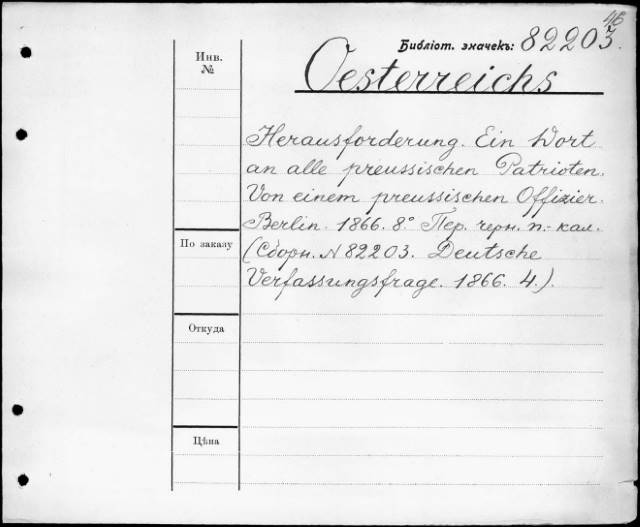 46
Библіот. значекъ: 82203.
Инв. №
Oesterreichs
Herausforderung. Ein Wort
an alle preussischen Patrioten.
Von einem preussischen Offizier.
Berlin. 1866. 8° Пер. черн. п.-кал.
По заказу
(Сборн. № 82203. Deutsche
Verfassungsfrage. 1866. 4.).
Откуда
Цѣна